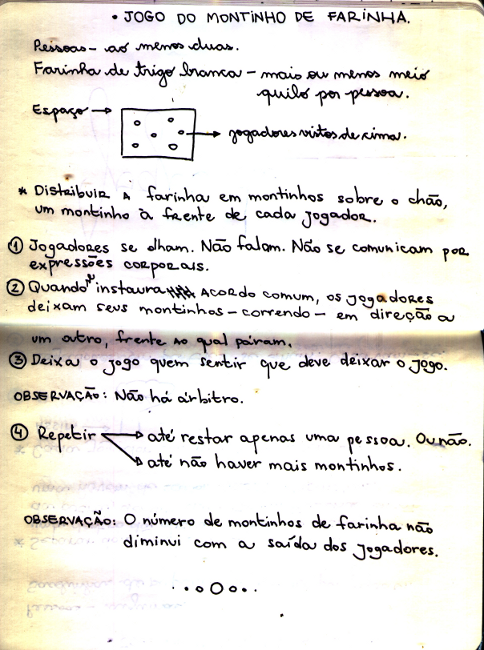 • JOGO DO MONTINHO DE FARINHA.
Pessoas - ao menos duas.
Farinha de trigo branca - mais ou menos meio
quilo por pessoa.
Espaço → → jogadores vistos de cima.
* Distribuir A farinha em montinhos sobre o chão,
um montinho à frente de cada jogador.
① Jogadores se olham. Não falam. Não se comunicam por
expressões corporais.
② Quando se instaura Acordo comum, os jogadores
deixam seus montinhos - correndo - em direção a
um outro, frente ao qual páram.
③ Deixa o jogo quem sentir que deve deixar o jogo.
OBSERVAÇÃO: Não há árbitro.
④ Repetir → até restar apenas uma pessoa. Ou não.
→ até não haver mais montinhos.
OBSERVAÇÃO: O número de montinhos de farinha não
diminui com a saída dos jogadores.